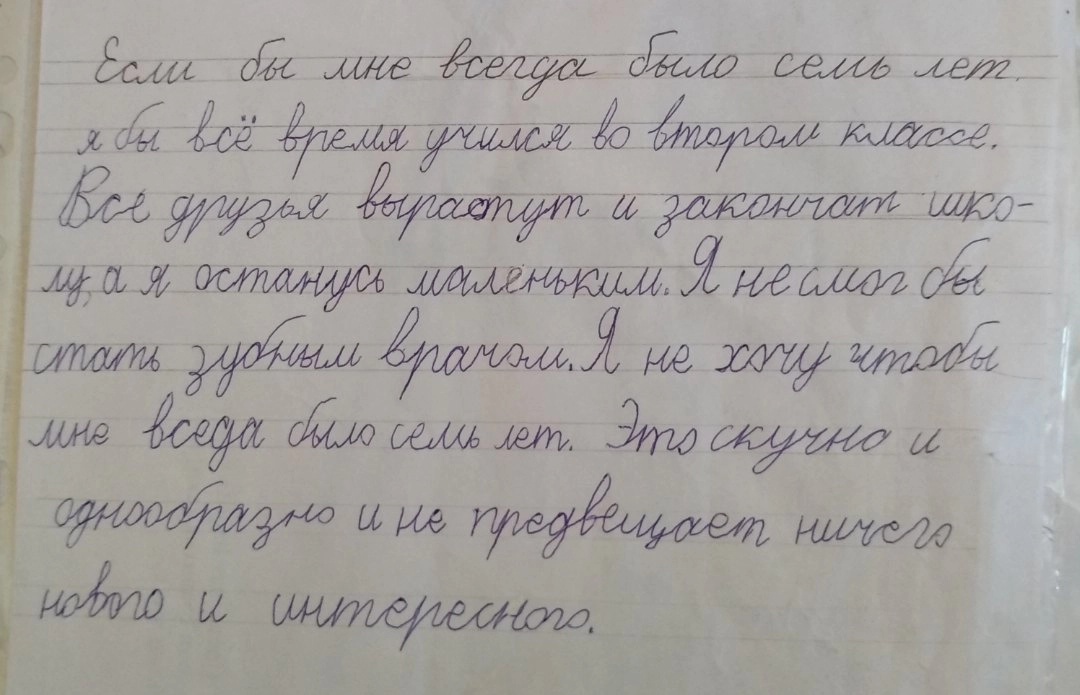 Если бы мне всегда было семь лет.
я бы всё время учился во втором классе.
Все друзья вырастут и закончат шко-
лу, а я останусь маленьким. Я не смог бы
стать зубным врачом. Я не хочу чтобы
мне вседа было семь лет. Это скучно и
однообразно и не предвещает ничего
нового и интересного.